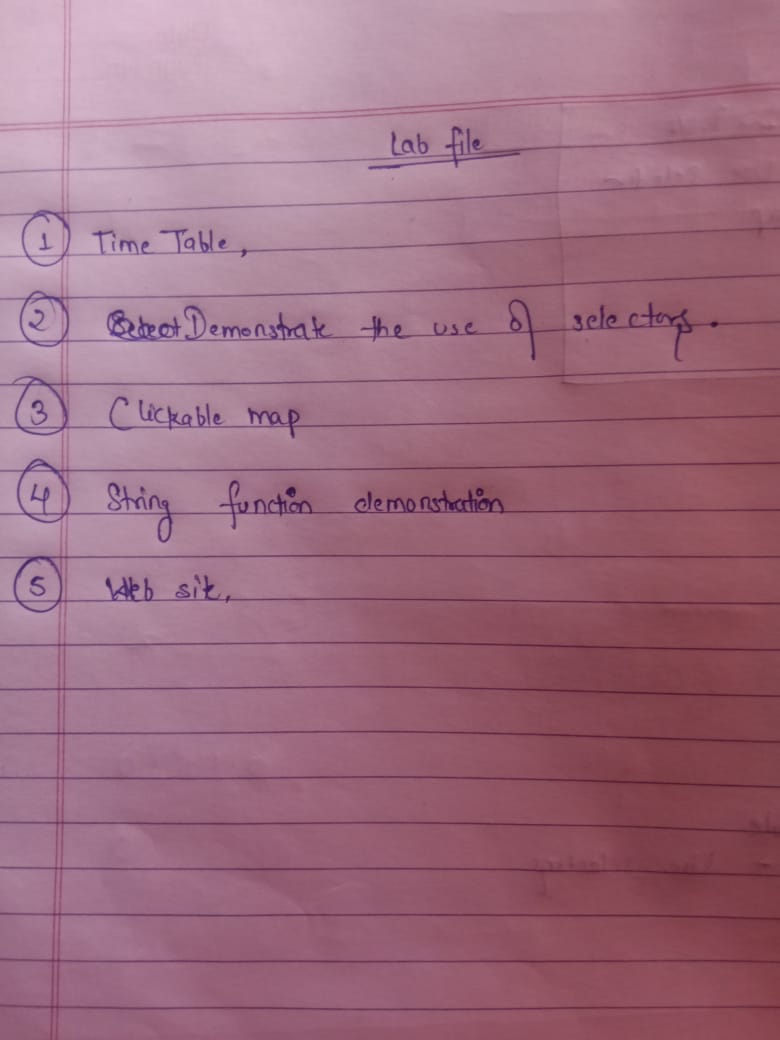 Lab file
1 Time Table,
2 Demonstrate the use of selectors.
3 Clickable map
4 String function demonstration
5 Web site,